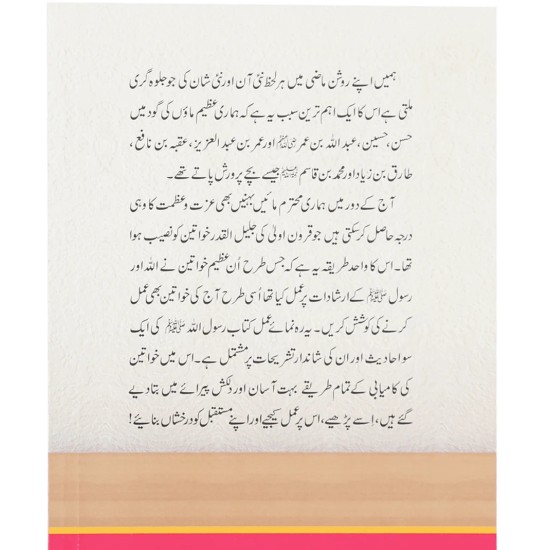 ہمیں اپنے روشن ماضی میں ہر لحظہ نئی آن اور نئی شان کی جو جلوہ گری
ملتی ہے اس کا ایک اہم ترین سبب یہ ہے کہ ہماری عظیم ماؤں کی گود میں
حسن، حسین، عبد اللہ بن عمر اور عمر بن عبد العزیز، عقبہ بن نافع،
طارق بن زیاد اور محمد بن قاسم جیسے بچے پرورش پاتے تھے۔
آج کے دور میں ہماری محترم مائیں بہنیں بھی عزت و عظمت کا وہی
درجہ حاصل کر سکتی ہیں جو قرون اولیٰ کی جلیل القدر خواتین کو نصیب ہوا
تھا۔ اس کا واحد طریقہ یہ ہے کہ جس طرح اُن عظیم خواتین نے اللہ اور
رسول ﷺ کے ارشادات پر عمل کیا تھا اُسی طرح آج کی خواتین بھی عمل
کرنے کی کوشش کریں۔ یہ رہ نمائے عمل کتاب رسول اللہ ﷺ کی ایک
سو احادیث اور ان کی شاندار تشریحات پر مشتمل ہے۔ اس میں خواتین
کی کامیابی کے تمام طریقے بہت آسان اور دلکش پیرائے میں بتا دیے
گئے ہیں، اسے پڑھیے، اس پر عمل کیجیے اور اپنے مستقبل کو درخشاں بنائیے!